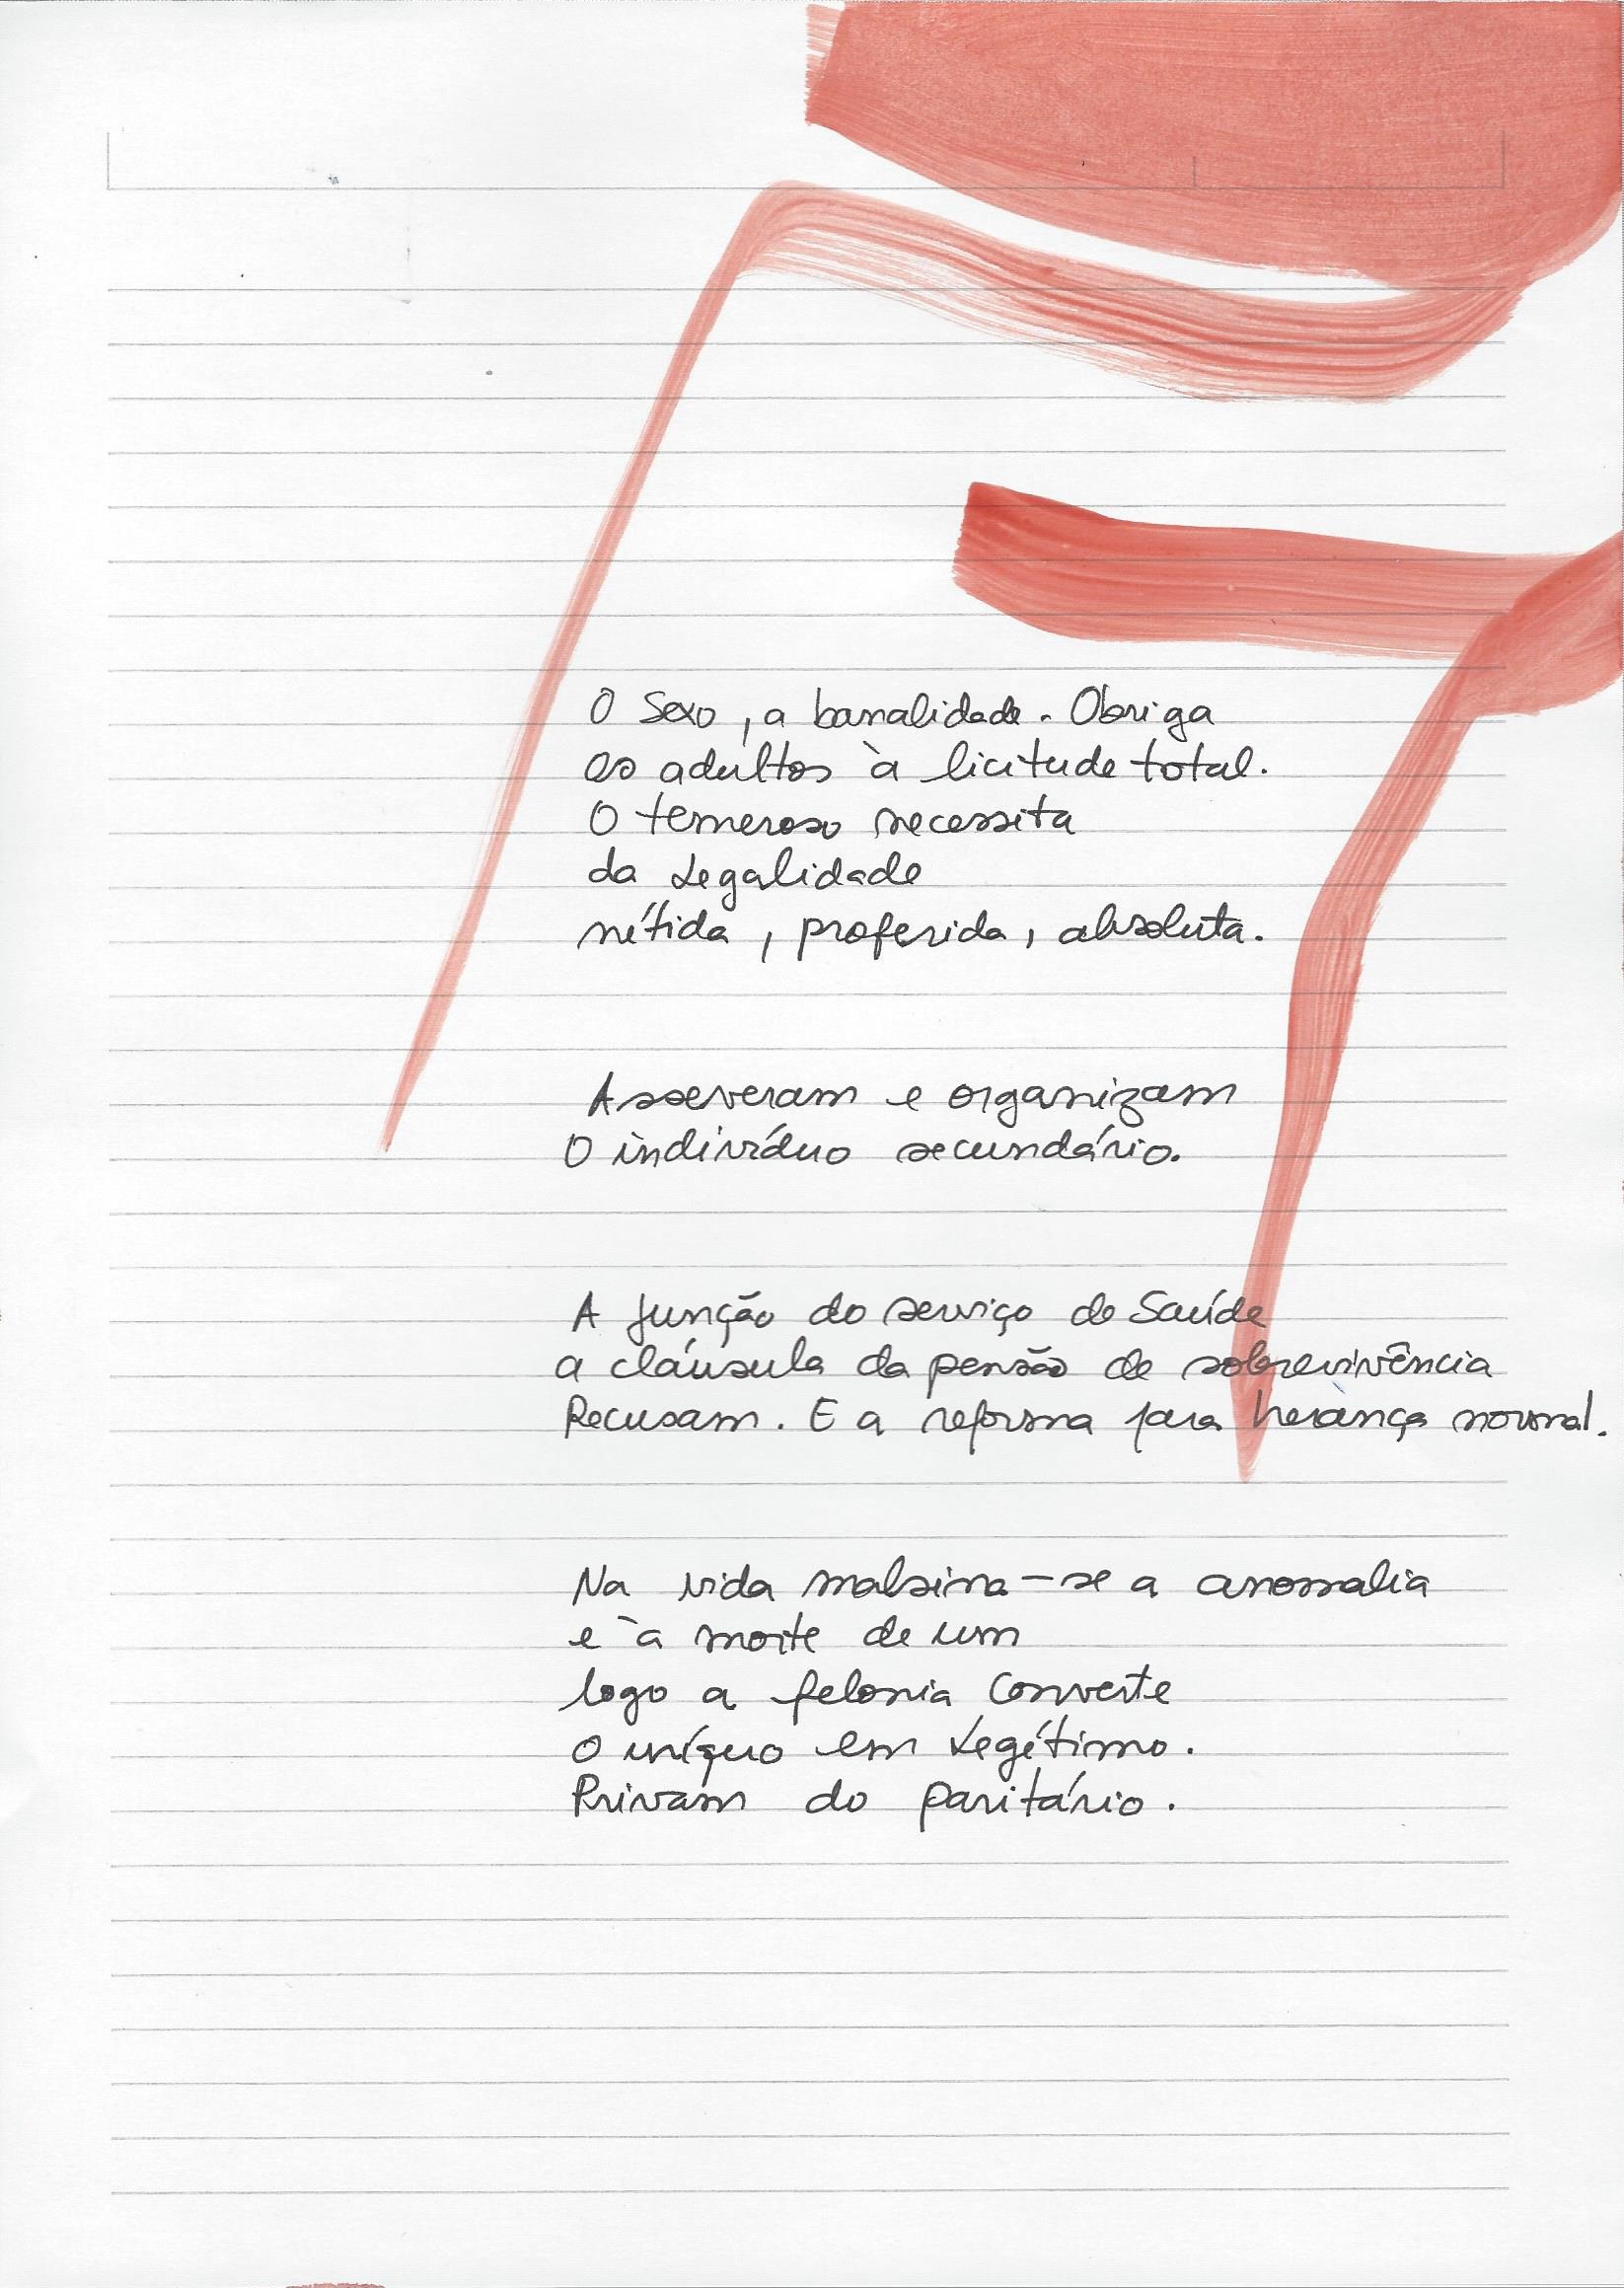 O Sexo, a banalidade. Obriga
os adultos à licitude total.
O temeroso necessita
da Legalidade
nítida, proferida, absoluta.
Asseveram e organizam
O indivíduo secundário.
A junção do serviço de Saúde
a cláusula da pensão de sobrevivência
Recusam. E a reforma para herança normal.
Na vida malsina-se a anomalia
e à morte de um
logo a felonia converte
O uníquo em Legítimo.
Privam do paritário.